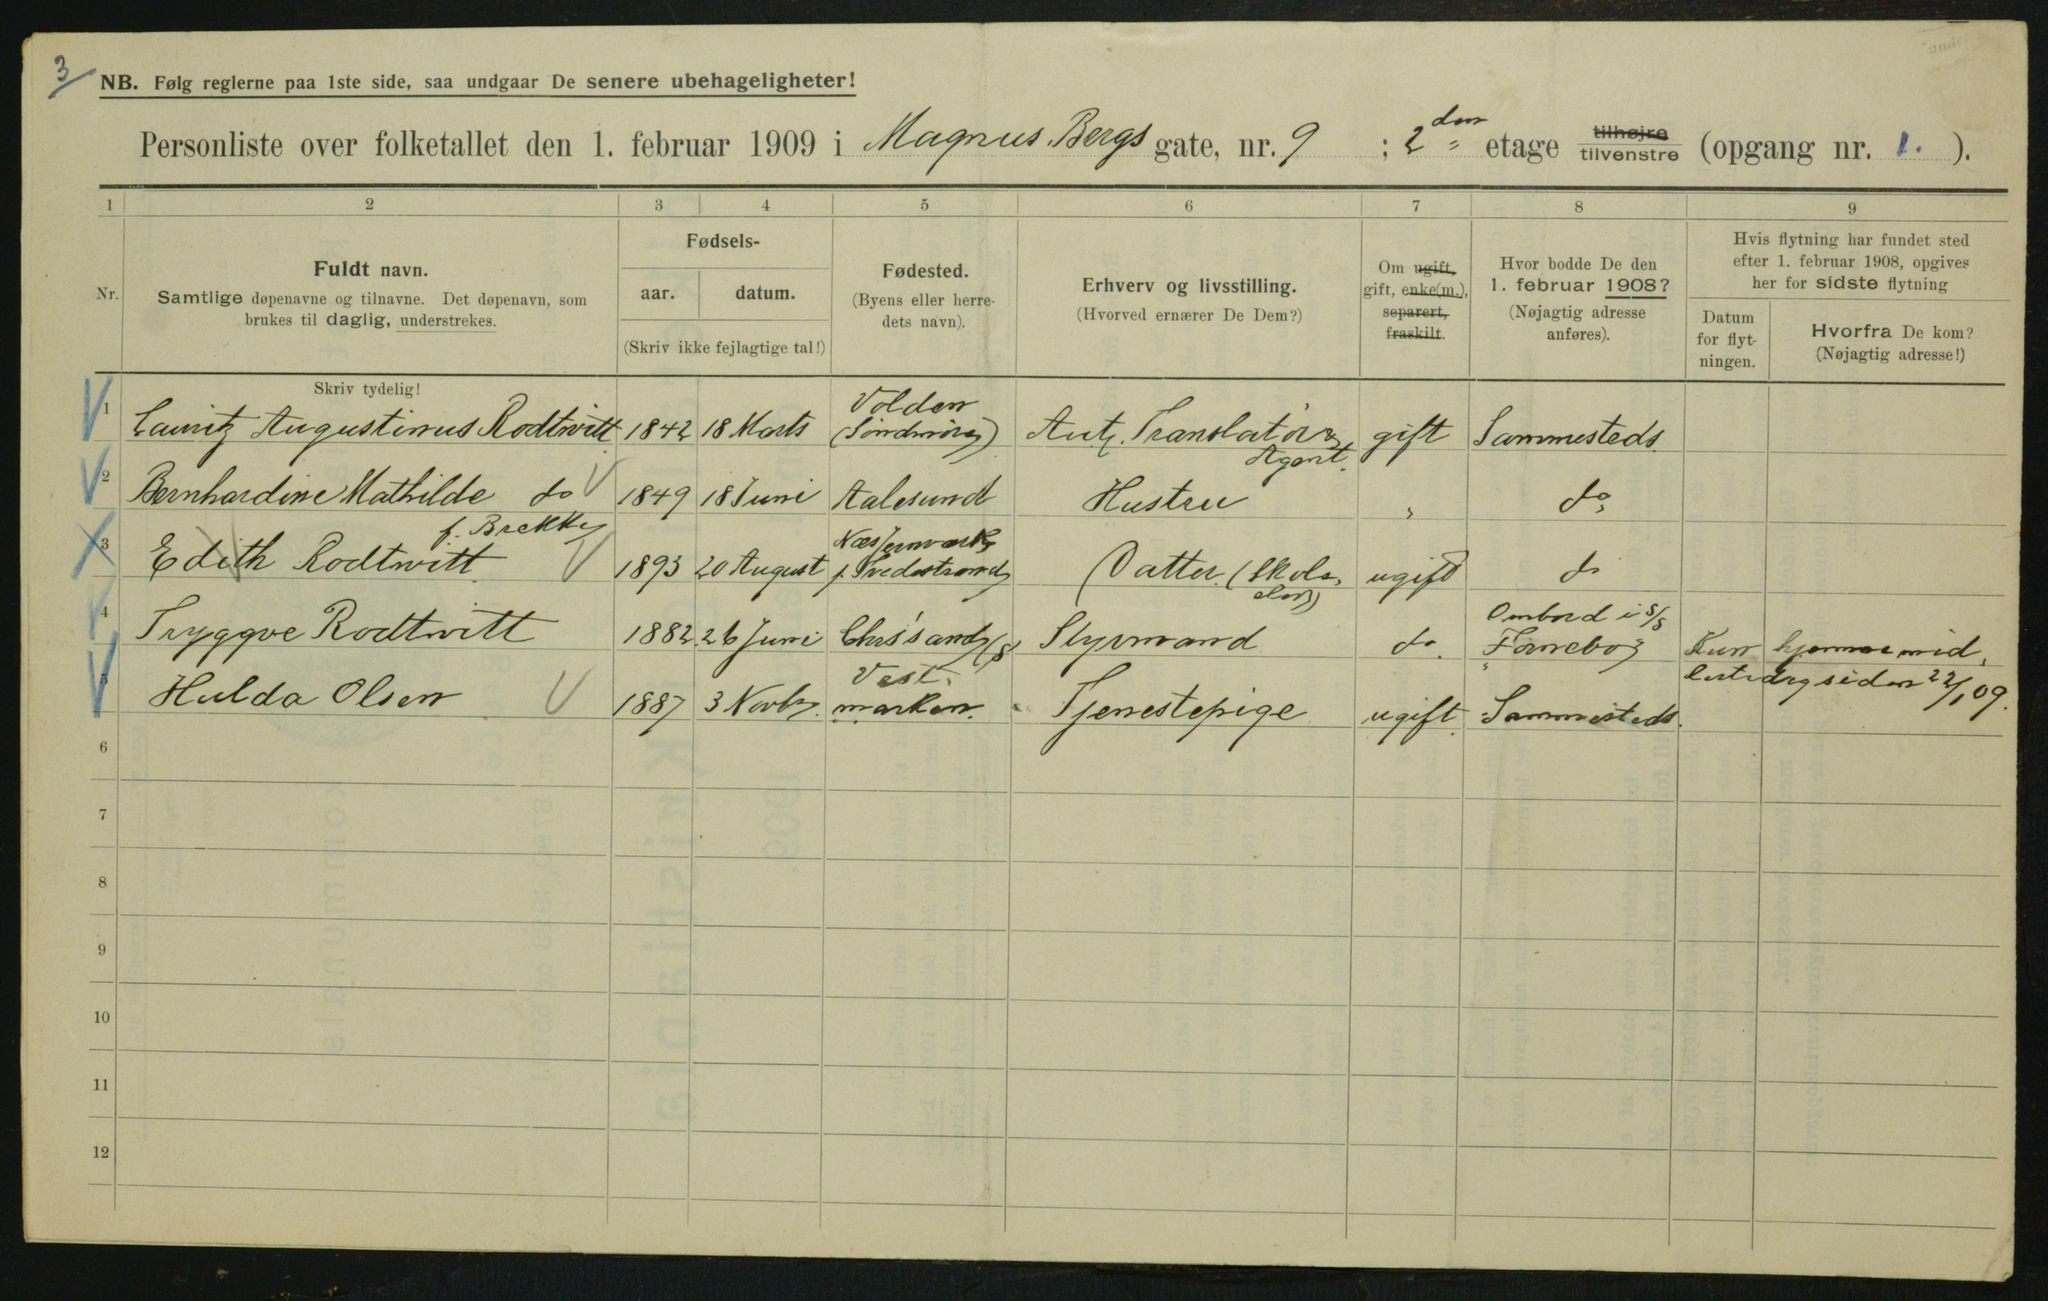 3
NB. Følg reglerne paa 1ste side, saa undgaar De senere ubehageligheter!
Personliste over folketallet den 1. februar 1909 i Magnus Bergs gate, nr. 9 ; 2den etage tilhøjre tilvenstre (opgang nr. 1. ).
1 2 3 4 5 6 7 8 9
Nr.
Fuldt navn.
Samtlige døpenavne og tilnavne. Det døpenavn, som
brukes til daglig, understrekes.
Fødsels-
aar. datum.
(Skriv ikke fejlagtige tal!)
Fødested.
(Byens eller herre-
dets navn).
Erhverv og livsstilling.
(Hvorved ernærer De Dem?)
Om ugift,
gift, enke(m.),
separert,
fraskilt.
Hvor bodde De den
1. februar 1908?
(Nøjagtig adresse
anføres).
Hvis flytning har fundet sted
efter 1. februar 1908, opgives
her for sidste flytning
Datum
for flyt-
ningen.
Hvorfra De kom?
(Nøjagtig adresse!)
Skriv tydelig!
1 Lauritz Augustinus Rodtwitt 1842 18 Marts Volden (Søndmøre) Aut. Translatør & Agent. gift Sammesteds.
2 Bernhardine Mathilde do f. Brekke 1849 18 Juni Aalesund Hustru " do
3 Edith Rodtwitt 1893 20 August Næs Jernværk p. Tvedestrand Datter. (Skole elev) ugift do
4 Tryggve Rodtwitt 1882 26 Juni Chrs'sand S Styrmand do. Ombord i S/S Fornebo Kun hjemme mid.
lertidig siden 22/1 09.
5 Hulda Olsen 1887 3 Novbr. Vestmarken. Tjenestepige ugift. Sammesteds.
6
7
8
9
10
11
12